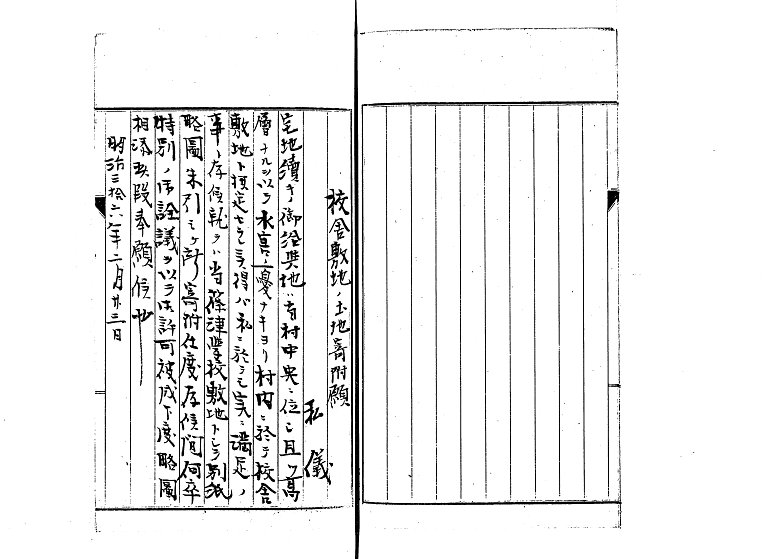 校舎敷地ノ土地寄附願
私儀
宅地續キノ御給與地ハ当村中央ニ位シ且ツ高
層ナルヲ以テ水害ノ憂ナキヨリ村内ニ於テ校舎
敷地ト撰定セラレ候得バ私ニ於テモ実ニ満足ノ
事ト存候就テハ当篠津校敷地トシテ別紙
略圖朱引之ヶ所寄附仕度存候間何卒
特別ノ御詮議ヲ以テ御許可被成下度略圖
相添此段奉願候也
明治三拾六年二月廿三日